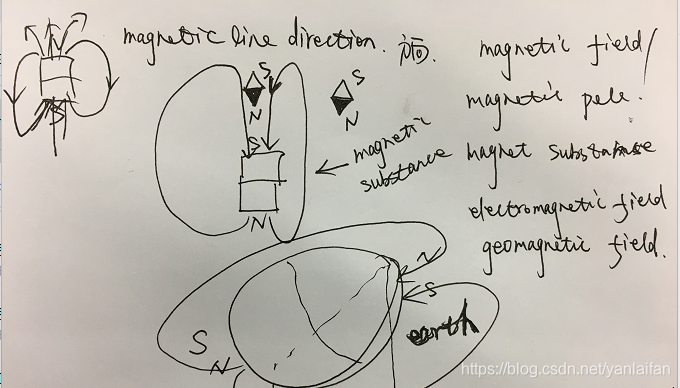 N
S
magnetic line direction.
magnetic field/
magnetic pole.
magnet substance
electromagnetic field
geomagnetic field.
S
N
S
N
S
N
magnetic
substance
N
S
earth
S
N
https://blog.csdn.net/yanlaifan